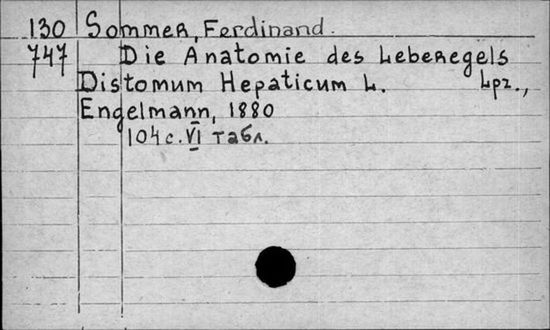 130 Sommer, Ferdinand.
747 Die Anatomie des Leberegels
Distomum Hepaticum L. Lpz.,
Engelmann, 1880
104 с. VI табл.